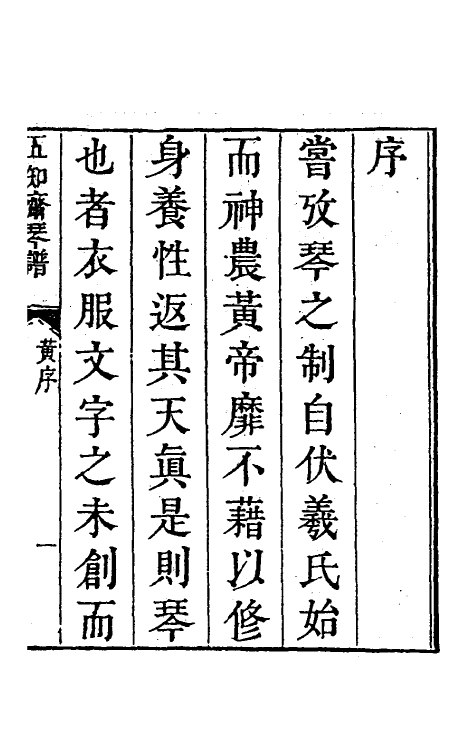 序
嘗攷琴之制自伏羲氏始
而神農黃帝靡不藉以修
身養性返其天眞是則琴
也者衣服文字之未創而
五知齋琴譜
黃序
一